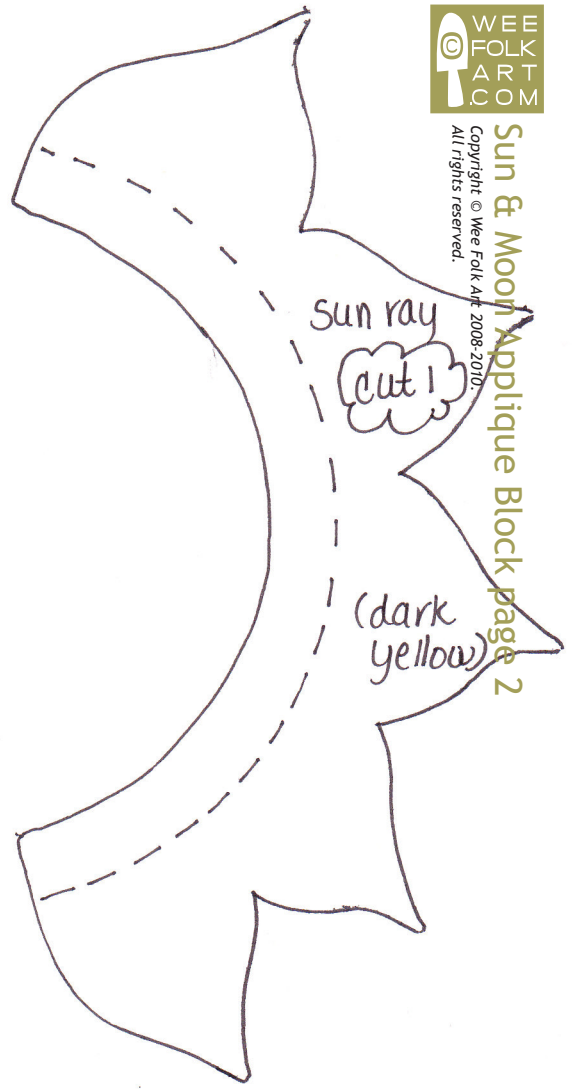 WEE
FOLK
ART
.COM
©
Sun & Moon Applique Block page 2
Copyright © Wee Folk Art 2008-2010.
All rights reserved.
sun ray
cut 1
(dark
yellow)